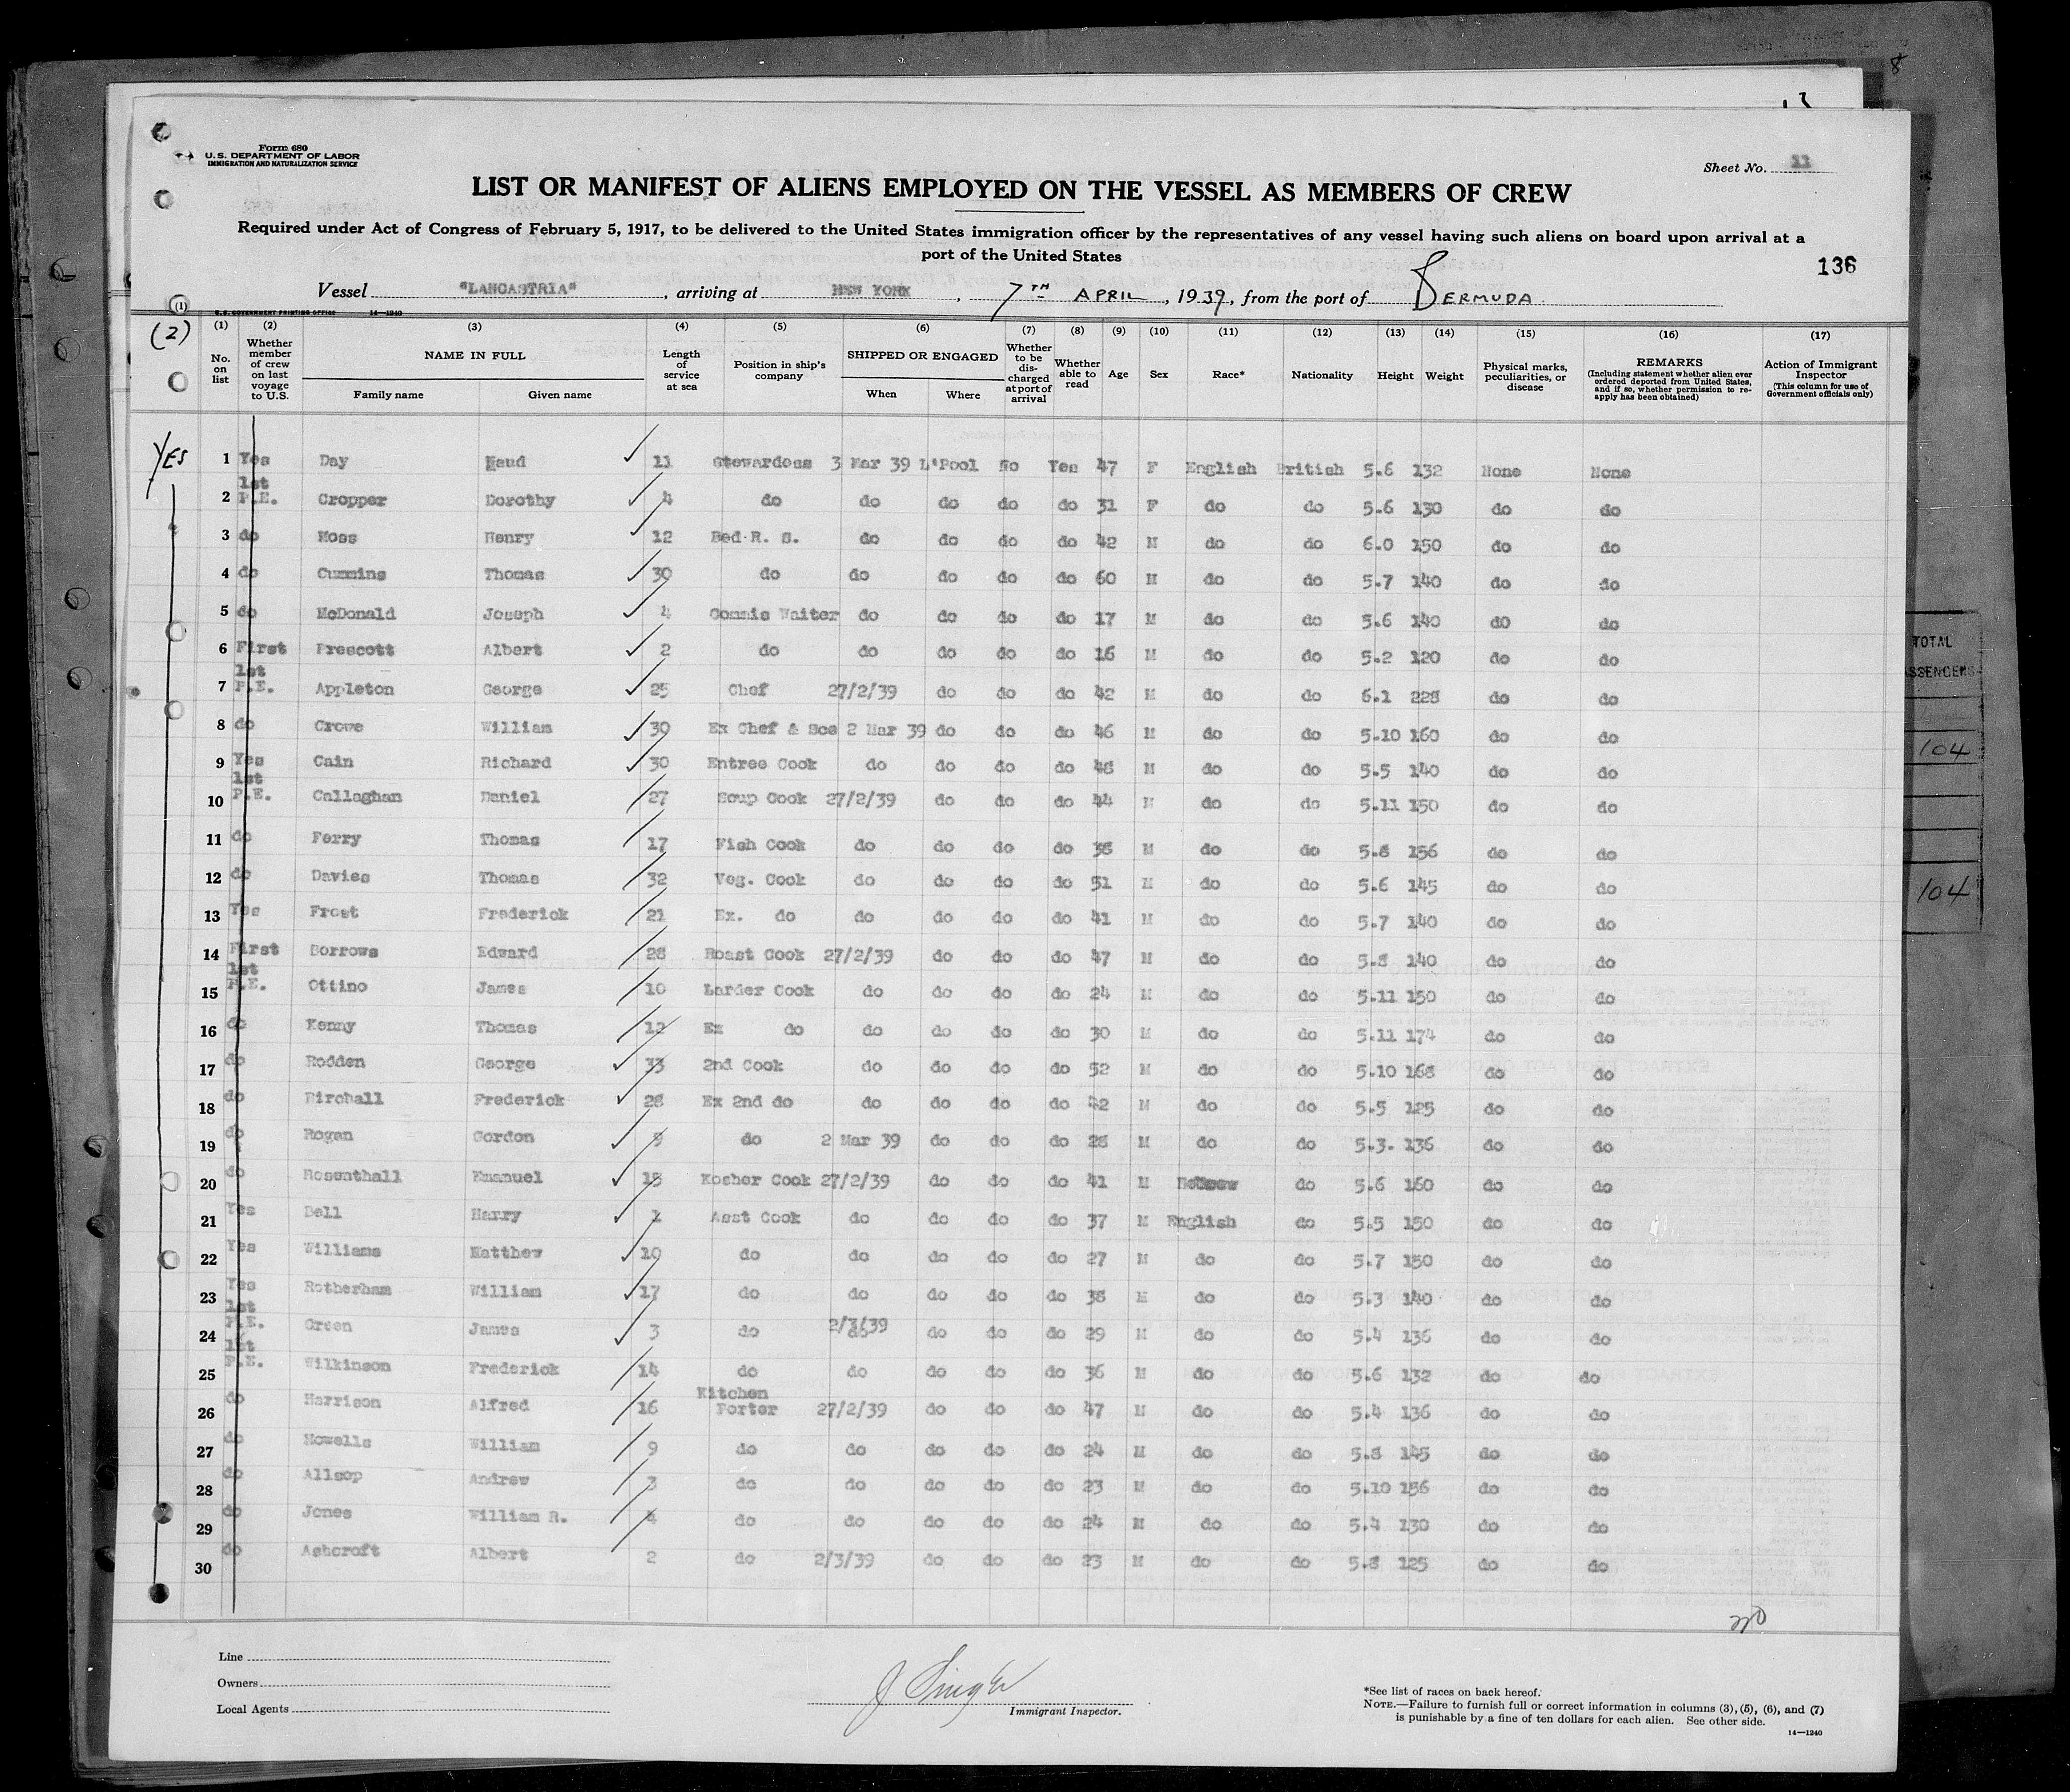 8
Form 680
U.S. DEPARTMENT OF LABOR
IMMIGRATION AND NATURALIZATION SERVICE
Sheet No. 11
LIST OR MANIFEST OF ALIENS EMPLOYED ON THE VESSEL AS MEMBERS OF CREW
Required under Act of Congress of February 5, 1917, to be delivered to the United States immigration officer by the representatives of any vessel having such aliens on board upon arrival at a
port of the United States
136
Vessel "LANCASTRIA", arriving at NEW YORK, 7TH APRIL, 1939, from the port of BERMUDA
U.S. GOVERNMENT PRINTING OFFICE 14—1240
(1)
(2) (1) (2) (3) (4) (5) (6) (7) (8) (9) (10) (11) (12) (13) (14) (15) (16) (17)
No. on list
Whether member of crew on last voyage to U.S.
NAME IN FULL
Family name Given name
Length of service at sea
Position in ship's company
SHIPPED OR ENGAGED
When Where
Whether to be discharged at port of arrival
Whether able to read
Age Sex Race* Nationality Height Weight
Physical marks, peculiarities, or disease
REMARKS
(Including statement whether alien ever ordered deported from United States, and if so, whether permission to reapply has been obtained)
Action of Immigrant Inspector
(This column for use of Government officials only)
YES 1 Yes Day Maud 11 Stewardess 3 Mar 39 L'Pool No Yes 47 F English British 5.6 132 None None
2 1st P.E. Cropper Dorothy 4 do do do do do 31 F do do 5.6 130 do do
3 do Moss Henry 12 Bed.R. S. do do do do 42 M do do 6.0 150 do do
4 do Cummins Thomas 30 do do do do do 60 M do do 5.7 140 do do
5 do McDonald Joseph 4 Commis Waiter do do do do 17 M do do 5.6 140 do do
6 First Prescott Albert 2 do do do do do 16 M do do 5.2 120 do do
7 1st P.E. Appleton George 25 Chef 27/2/39 do do do 42 M do do 6.1 228 do do
8 do Crowe William 30 Ex Chef & Sce 2 Mar 39 do do do 46 M do do 5.10 160 do do
9 Yes Cain Richard 30 Entree Cook do do do do 48 M do do 5.5 140 do do
10 1st P.E. Callaghan Daniel 27 Soup Cook 27/2/39 do do do 44 M do do 5.11 150 do do
11 do Ferry Thomas 17 Fish Cook do do do do 38 M do do 5.8 156 do do
12 do Davies Thomas 32 Veg. Cook do do do do 51 M do do 5.6 145 do do
13 Yes Frost Frederick 21 Ex. do do do do do 41 M do do 5.7 140 do do
14 First Borrows Edward 28 Roast Cook 27/2/39 do do do 47 M do do 5.8 140 do do
15 1st P.E. Ottino James 10 Larder Cook do do do do 24 M do do 5.11 150 do do
16 do Kenny Thomas 12 Ex do do do do do 30 M do do 5.11 174 do do
17 do Rodden George 33 2nd Cook do do do do 52 M do do 5.10 168 do do
18 do Birchall Frederick 28 Ex 2nd do do do do do 42 M do do 5.5 125 do do
19 do Rogan Gordon do 2 Mar 39 do do do 28 M do do 5.3. 136 do do
20 do Rosenthall Emanuel 18 Kosher Cook 27/2/39 do do do 41 M Hebrew do 5.6 160 do do
21 Yes Bell Harry 1 Asst Cook do do do do 37 M English do 5.5 150 do do
22 Yes Williams Matthew 10 do do do do do 27 M do do 5.7 150 do do
23 Yes Rotherham William 17 do do do do do 38 M do do 5.3 140 do do
24 1st P.E. Green James 3 do 2/3/39 do do do 29 M do do 5.4 136 do do
25 1st P.E. Wilkinson Frederick 14 do do do do do 36 M do do 5.6 132 do do
26 do Harrison Alfred 16 Kitchen Porter 27/2/39 do do do 47 M do do 5.4 136 do do
27 do Howells William 9 do do do do do 24 M do do 5.8 145 do do
28 do Allsop Andrew 3 do do do do do 23 M do do 5.10 156 do do
29 do Jones William R. 4 do do do do do 24 M do do 5.4 130 do do
30 do Ashcroft Albert 2 do 2/3/39 do do do 23 M do do 5.8 125 do do
TOTAL
104
104
Line
Owners
Local Agents
Immigrant Inspector.
*See list of races on back hereof.
NOTE.—Failure to furnish full or correct information in columns (3), (5), (6), and (7)
is punishable by a fine of ten dollars for each alien. See other side.
14—1240